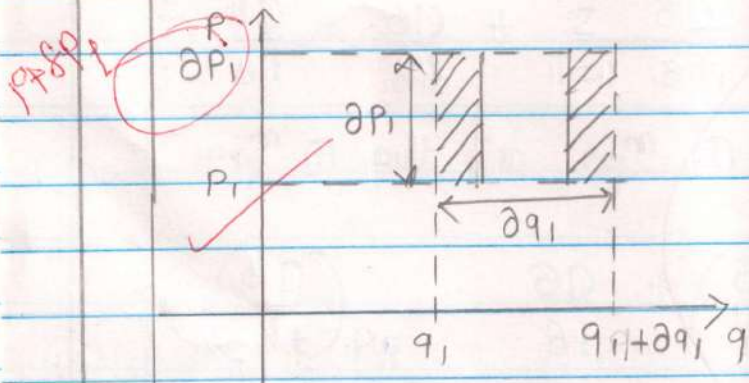 P
p+δp₁
∂P₁
∂p₁
P₁
∂q₁
q₁
q₁+∂q₁
q